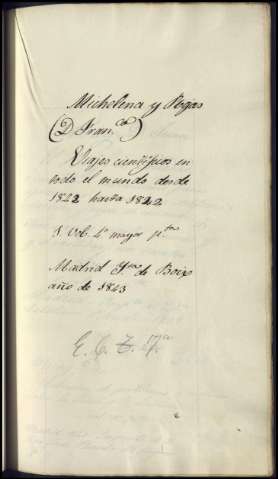 Michelena y Rojas
(D Fran.co)
Viajes científicos en
todo el mundo desde
1822 hasta 1842
1 Vol. 4º mayor pta
Madrid Yma de Boix
año de 1843
E. 6. T.